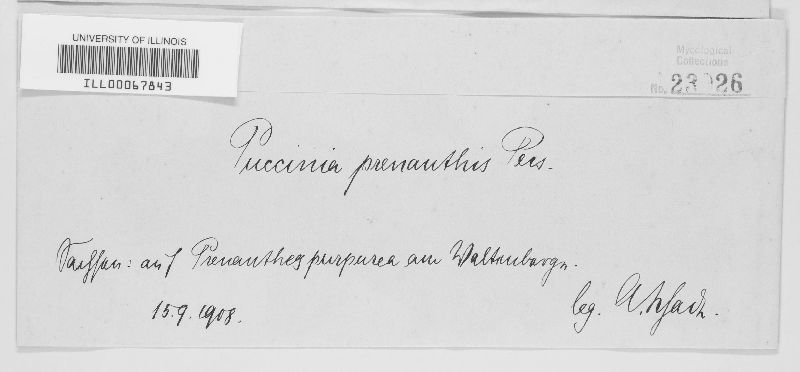 UNIVERSITY OF ILLINOIS
ILL00067843
Mycological
Collections
No. 23 26
Puccinia prenanthis Pers.
Sachsen: auf Prenanthes purpurea am
15.9.1908.
leg. A.